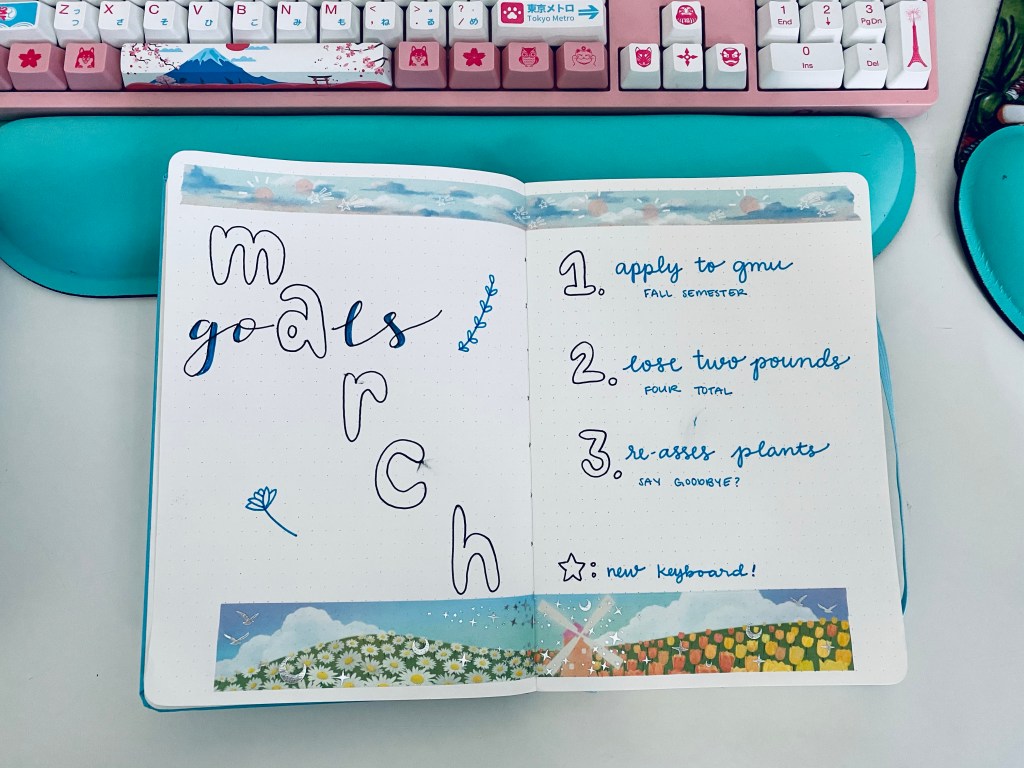 Z っ つ X さ C そ V ひ B こ N み M も < 、 , ね > 。 . る ? ・ / め
東京メトロ
Tokyo Metro
1 2 3
End ↓ PgDn
0 .
Ins Del
m
goals
r
c
h
1. apply to gmu
FALL SEMESTER
2. lose two pounds
FOUR TOTAL
3. re-asses plants
SAY GOODBYE?
☆: new keyboard!